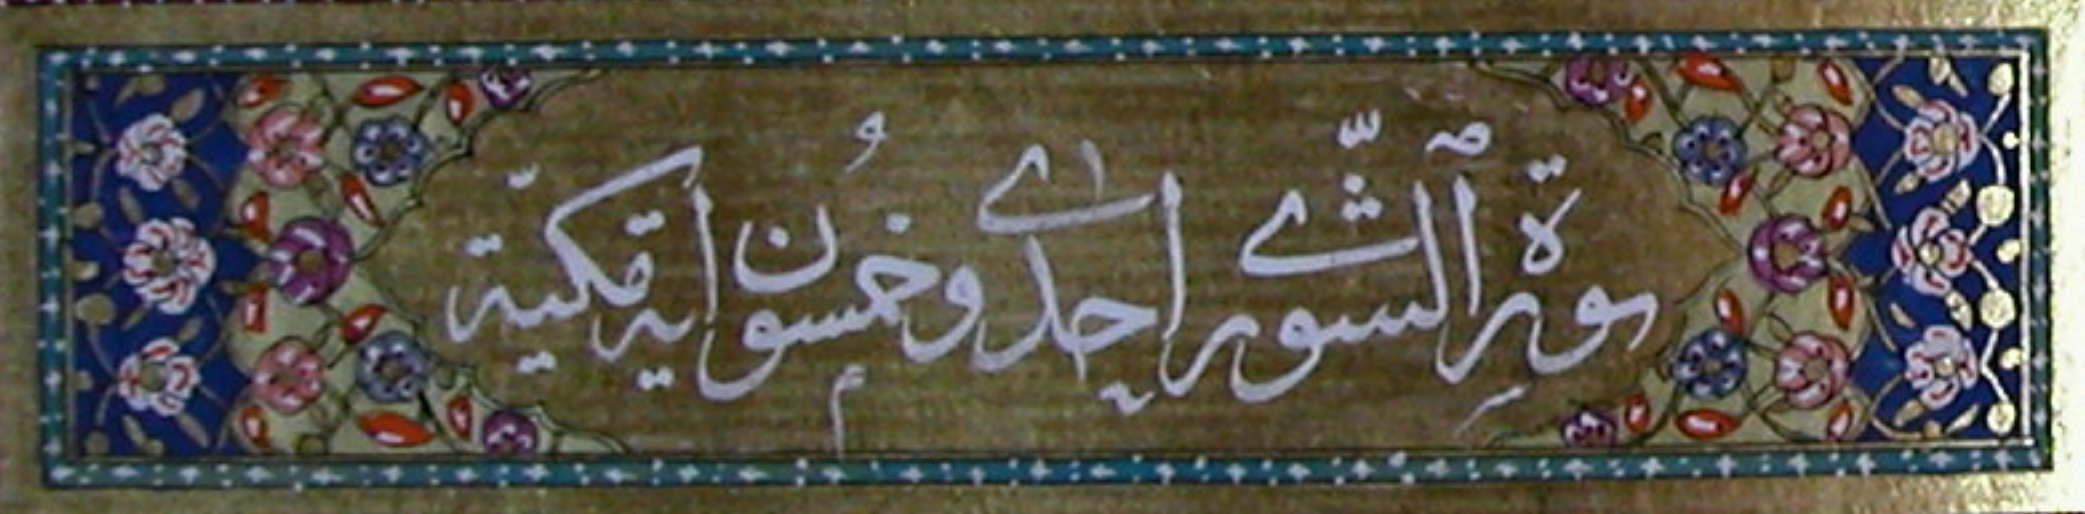 سُورَةُ الشّورى اِحدى وخمسُون اية مكيّة